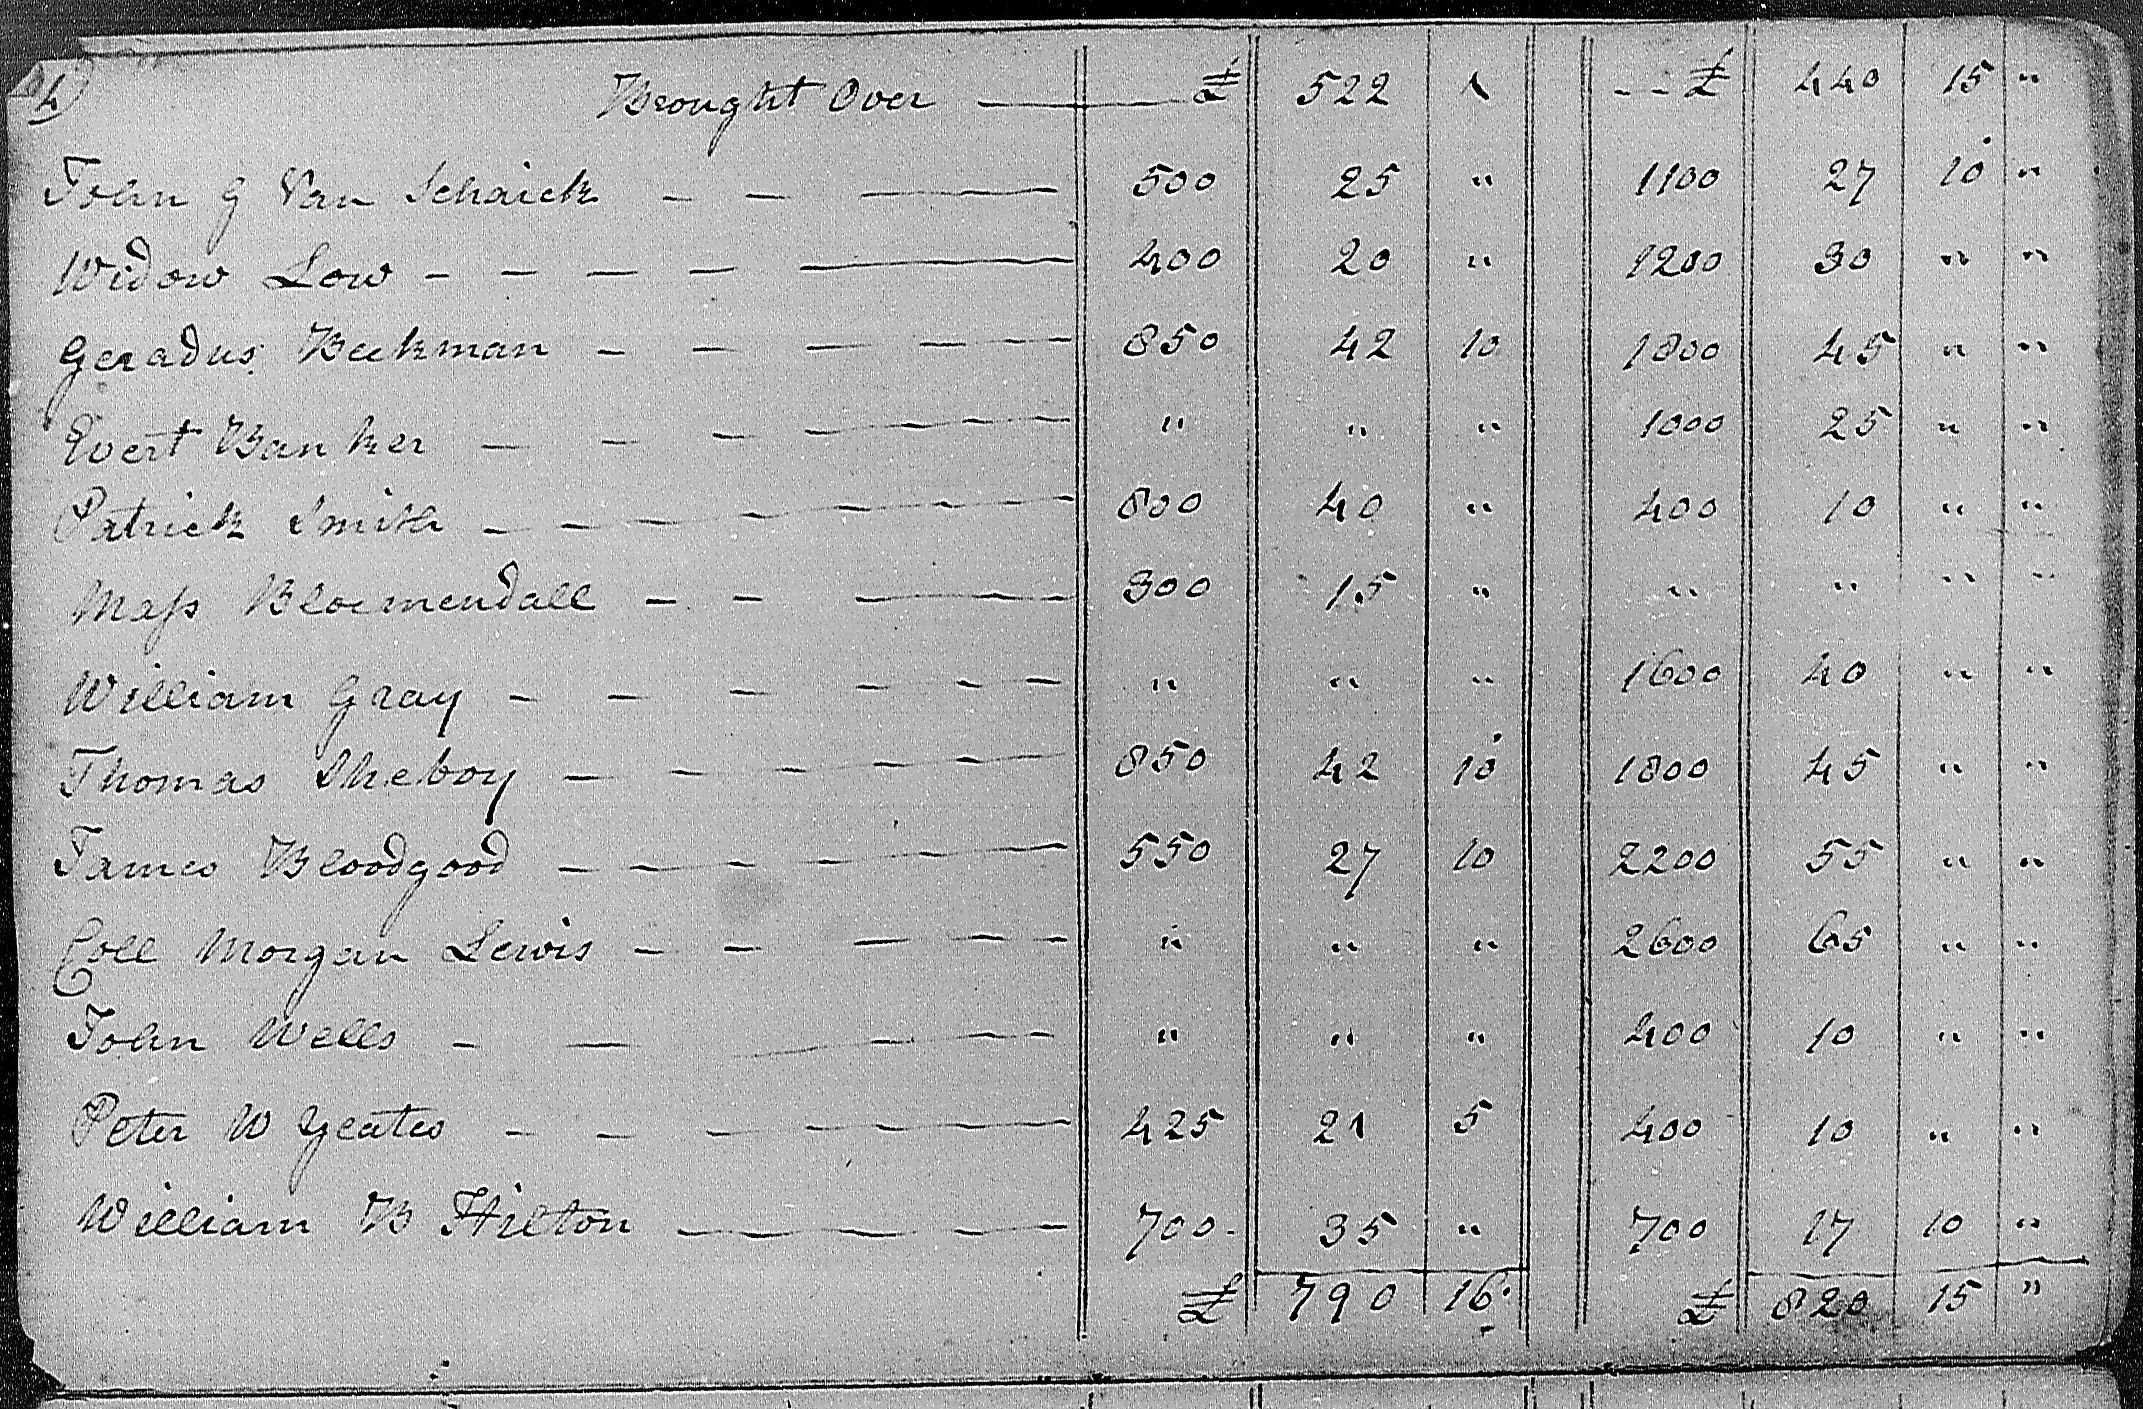 4)
Brought Over — £ 522 1 -- £ 440 15 "
John G Van Schaick - - — 500 25 " 1100 27 10 "
Widow Low - - - - — 400 20 " 1200 30 " "
Geradus Beekman - - - - - 850 42 10 1800 45 " "
Evert Banker - - - - - - " " " 1000 25 " "
Patrick Smith - - - - - - - 800 40 " 400 10 " "
Mass Bloemendall - - — 300 15 " " " " "
William Gray - - - - - - " " " 1600 40 " "
Thomas Sheboy - - - - - - 850 42 10 1800 45 " "
James Bloodgood - - - - - - 550 27 10 2200 55 " "
Coll Morgan Lewis - - - - - " " " 2600 65 " "
John Wells - - - - - " " " 400 10 " "
Peter W Yeates - - - - - - 425 21 5 400 10 " "
William B Hilton - - - - 700 35 " 700 17 10 "
£ 790 16 £ 820 15 "